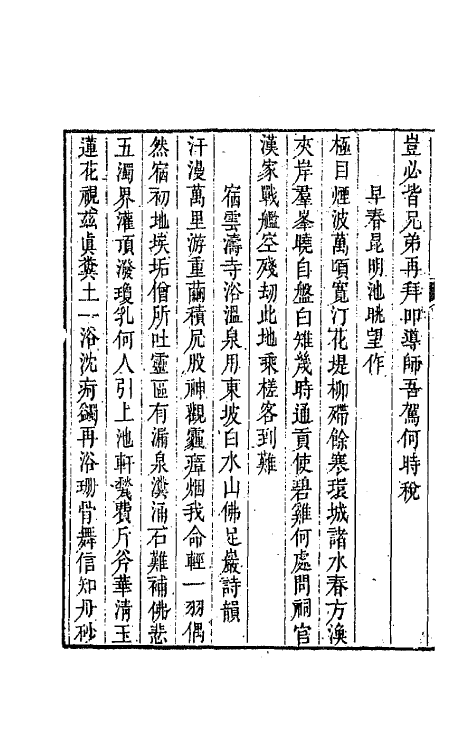 豈必皆兄弟再拜叩導師吾駕何時稅
早春昆明池眺望作
極目煙波萬頃寬汀花堤柳殢餘寒環城諸水春方渙
夾岸羣峯曉自盤白雉幾時通貢使碧雞何處問祠官
漢家戰艦空殘劫此地乘槎客到難
宿雲濤寺浴溫泉用東坡白水山佛足巖詩韻
汗漫萬里游重繭積尻股神觀霾瘴烟我命輕一羽偶
然宿初地埃垢僧所吐靈區有漏泉濆涌石難補佛悲
五濁界灌頂潑瓊乳何人引上池軒甃費斤斧華清玉
蓮花視茲眞糞土一浴沈疴蠲再浴珊骨舞信知丹砂